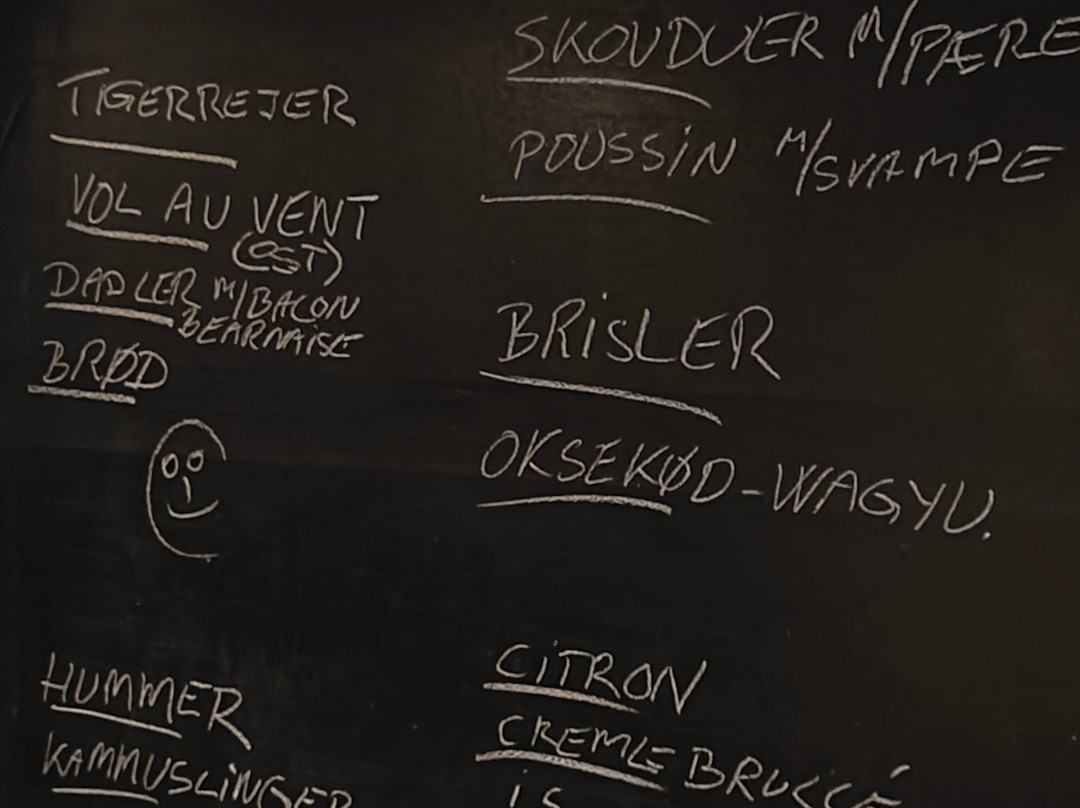 TIGERREJER
VOL AU VENT
(OST)
DADLER M/BACON
BEARNAISE
BRØD
HUMMER
KAMMUSLINGER
SKOVDUER M/PÆRE
POUSSIN M/SVAMPE
BRISLER
OKSEKØD-WAGYU.
CITRON
CREME
IS